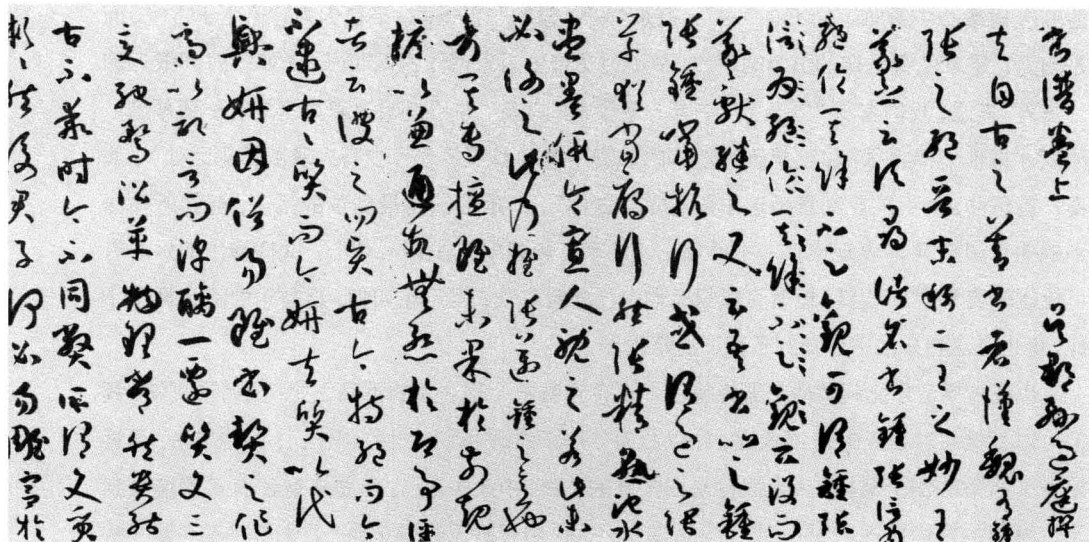 書譜卷上 吳郡孫過庭撰
夫自古之善書者漢魏有鍾
張之絕晉末稱二王之妙王
羲之云頃尋諸名書鍾張信為
絕倫其餘不足觀可謂鍾張
信為絕倫其餘不足觀云沒而
羲獻繼之又云吾書比之鍾
張鍾當抗行或謂過之張
草猶當鴈行然張精熟池水
盡墨假令寡人耽之若此未
必謝之此乃推張邁鍾之意也
考其專擅雖未果於前規
摭以兼通故無慚於即事評
者云彼之四賢古今特絕而今
不逮古〻質而今妍夫質以代
興妍因俗易雖書契之作
適以記言而淳醨一遷質文三
變馳騖沿革物理常然貴能
古不乖時今不同弊所謂文質
彬〻然後君子何必易雕宮於